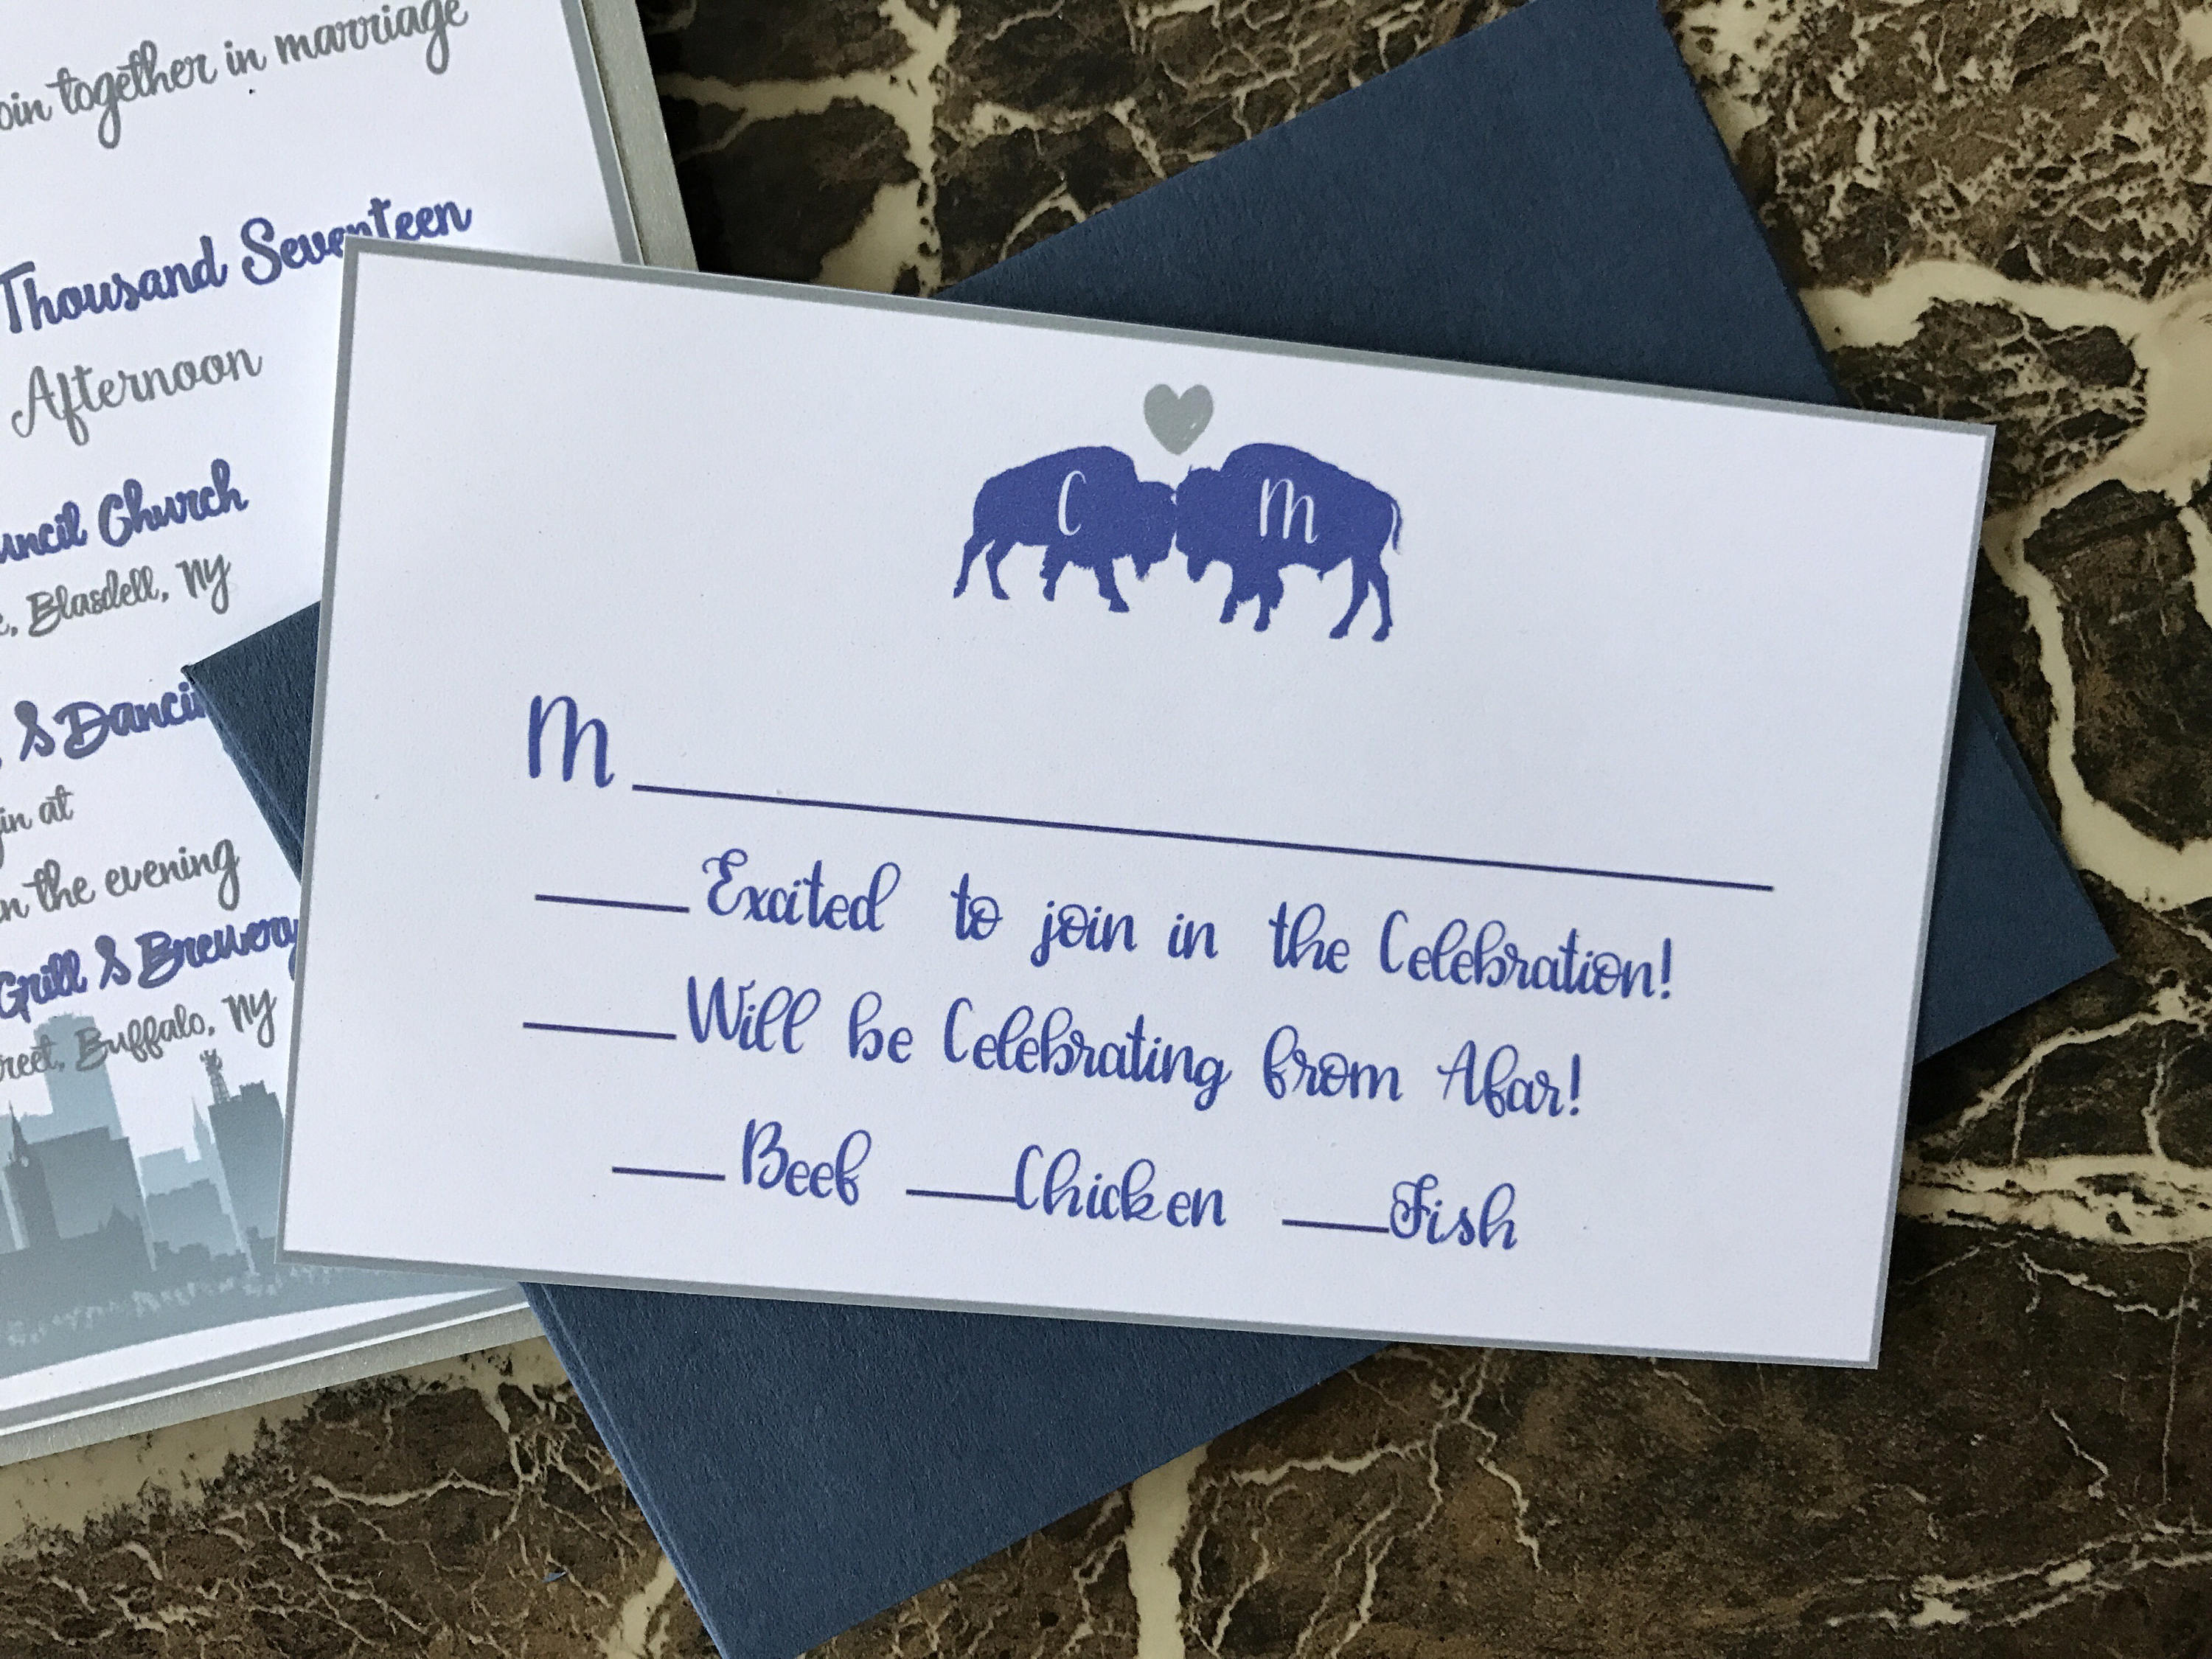 together in marriage
Thousand Seventeen
Afternoon
Church
Blasdell, NY
&
at
the evening
Grill & Brewery
Buffalo, NY
C M
M
Excited to join in the Celebration!
Will be Celebrating from Afar!
Beef Chicken Fish